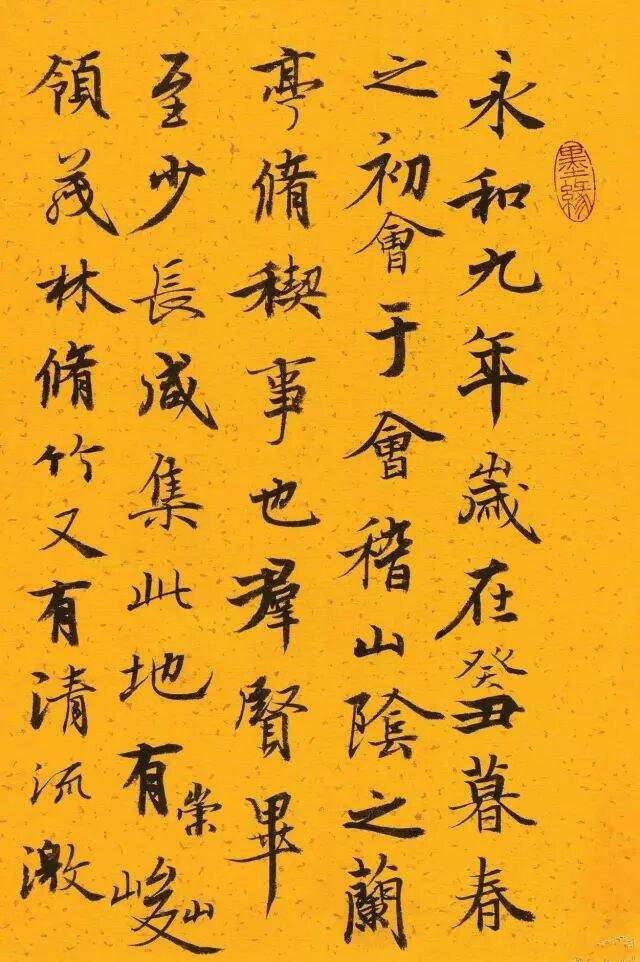 永和九年歲在癸丑暮春
之初會于會稽山陰之蘭
亭脩稧事也羣賢畢
至少長咸集此地有崇峻
領茂林脩竹又有清流激
墨緣